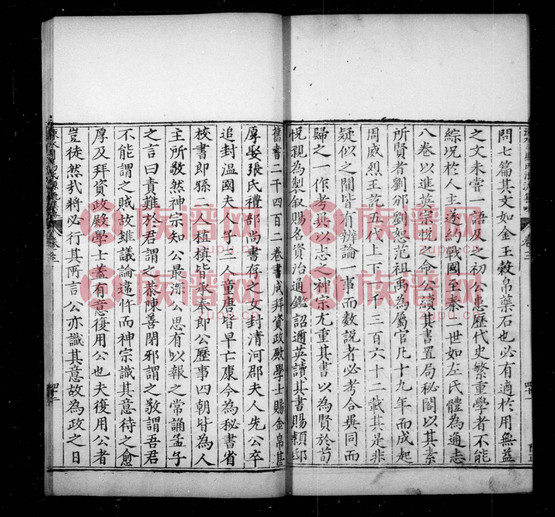 問七篇其文如金玉穀帛藥石也必有適於用無益
之文未嘗一語及之初公患歷代史繁重學者不能
綜況於人主遂約戰國至秦二世如左氏體為通志
八卷以進英宗悅之命公續其書置局秘閣以其素
所賢者劉攽劉恕范祖禹為屬官凡十九年而成起
周威烈王訖五代上下一千三百六十二載其是非
疑似之間皆有辯論一事而數說者必考合異同而
歸之一作考異以志之神宗尤重其書以為賢於荀
悅親為製敘賜名資治通鑑詔邇英讀其書賜潁邸
舊書二千四百二卷書成拜資政殿學士賜金帛甚
厚娶張氏禮部尚書存之女封清河郡夫人先公卒
追封溫國夫人子三人童唐皆早亡康今為秘書省
校書郎孫二人植桓皆承奉郎公歷事四朝皆為人
主所敬然神宗知公最深公思有以報之常誦孟子
之言曰責難於君謂之恭陳善閉邪謂之敬謂吾君
不能謂之賊故雖議論違忤而神宗識其意待之愈
厚及拜資政殿學士蓋有意復用公也夫復用公者
豈徒然哉將必行其所言公亦識其意故為政之日
族譜网